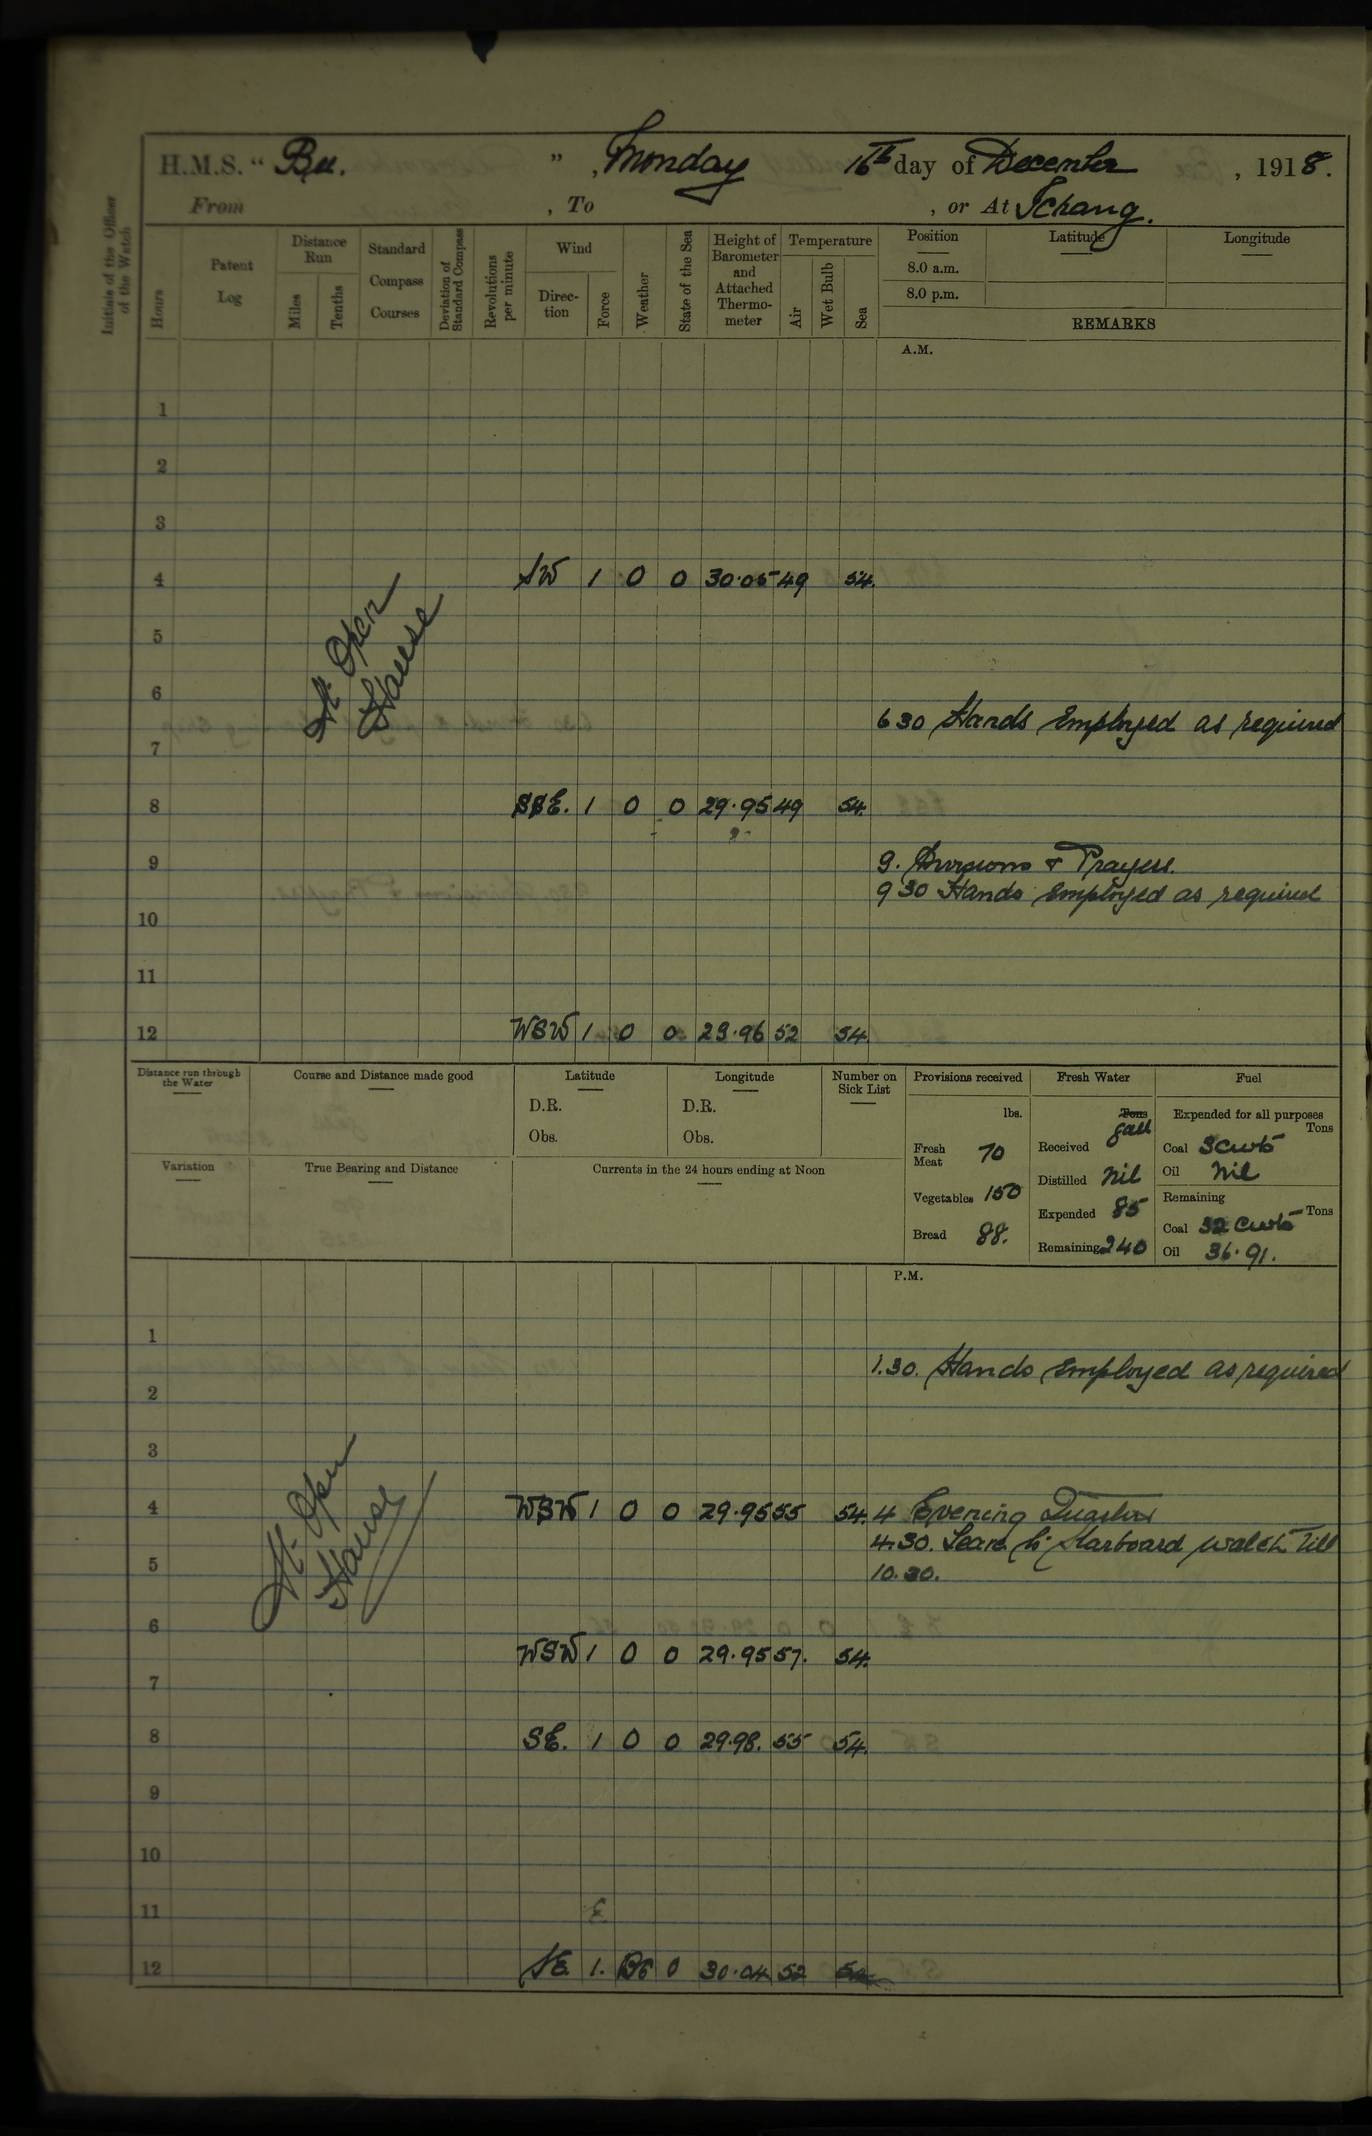 H.M.S. “ Bee. ” , Monday 16th day of December , 1918.
From , To , or At Ichang.
Initials of the Officer of the Watch
Hours
Patent Log
Distance Run
Miles
Tenths
Standard Compass Courses
Deviation of Standard Compass
Revolutions per minute
Wind
Direction
Force
Weather
State of the Sea
Height of Barometer and Attached Thermometer
Temperature
Air
Wet Bulb
Sea
Position
8.0 a.m.
8.0 p.m.
Latitude
Longitude
REMARKS
A.M.
1
2
3
4 SW 1 0 0 30.05 49 54.
5
At Open
Hause
6
6 30 Hands Employed as required
7
8 SSE. 1 0 0 29.95 49 54.
9 9. Divisions & Prayers.
9 30 Hands Employed as required
10
11
12 WSW 1 0 0 29.96 52 54
Distance run through the Water
Course and Distance made good
Latitude
D.R.
Obs.
Longitude
D.R.
Obs.
Number on Sick List
Variation
True Bearing and Distance
Currents in the 24 hours ending at Noon
Provisions received
lbs.
Fresh Meat 70
Vegetables 150
Bread 88.
Fresh Water
Tons
gall
Received
Distilled Nil
Expended 85
Remaining 240
Fuel
Expended for all purposes
Tons
Coal 3 cwts
Oil Nil
Remaining
Tons
Coal 32 cwts
Oil 36.91.
P.M.
1
1.30. Hands Employed as required
2
3
4 WSW 1 0 0 29.95 55 54. 4 Evening Quarters
4.30. Leave to Starboard watch till
5 10.30.
At Open
Hause
6
WSW 1 0 0 29.95 57. 54.
7
8 SE. 1 0 0 29.98. 55 54.
9
10
11 E
12 SE 1. BC 0 30.04 52